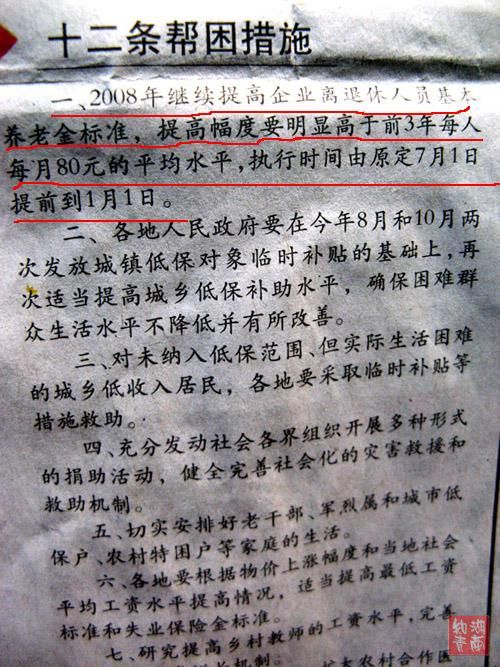 十二条帮困措施
一、2008年继续提高企业离退休人员基本
养老金标准，提高幅度要明显高于前3年每人
每月80元的平均水平，执行时间由原定7月1日
提前到1月1日。
二、各地人民政府要在今年8月和10月两
次发放城镇低保对象临时补贴的基础上，再
次适当提高城乡低保补助水平，确保困难群
众生活水平不降低并有所改善。
三、对未纳入低保范围、但实际生活困难
的城乡低收入居民，各地要采取临时补贴等
措施救助。
四、充分发动社会各界组织开展多种形式
的捐助活动，健全完善社会化的灾害救援和
救助机制。
五、切实安排好老干部、军烈属和城市低
保户、农村特困户等家庭的生活。
六、各地要根据物价上涨幅度和当地社会
平均工资水平提高情况，适当提高最低工资
标准和失业保险金标准。
七、研究提高乡村教师的工资水平，完善
农村合作医